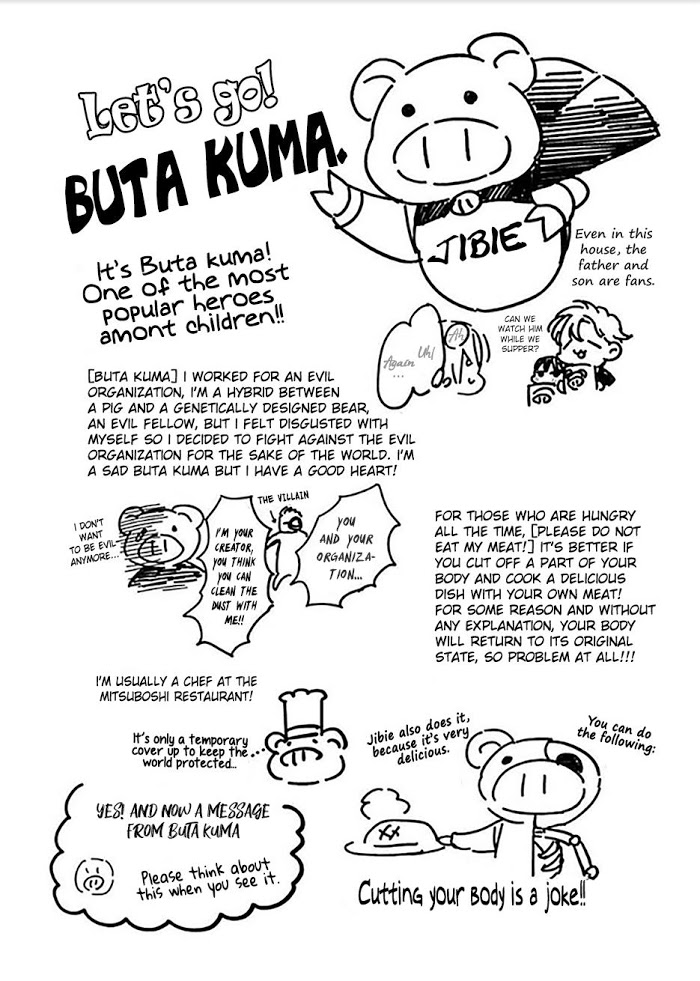 Let's go!
BUTA KUMA.
JIBIE
It's Buta kuma!
One of the most
popular heroes
amont children!!
Even in this
house, the
father and
son are fans.
CAN WE
WATCH HIM
WHILE WE
SUPPER?
Ah
Uh!
Again
...
[BUTA KUMA] I WORKED FOR AN EVIL
ORGANIZATION, I'M A HYBRID BETWEEN
A PIG AND A GENETICALLY DESIGNED BEAR,
AN EVIL FELLOW, BUT I FELT DISGUSTED WITH
MYSELF SO I DECIDED TO FIGHT AGAINST THE EVIL
ORGANIZATION FOR THE SAKE OF THE WORLD. I'M
A SAD BUTA KUMA BUT I HAVE A GOOD HEART!
I DON'T
WANT
TO BE EVIL
ANYMORE...
I'M YOUR
CREATOR,
YOU THINK
YOU CAN
CLEAN THE
DUST WITH
ME!!
THE VILLAIN
YOU
AND YOUR
ORGANIZA-
TION...
FOR THOSE WHO ARE HUNGRY
ALL THE TIME, [PLEASE DO NOT
EAT MY MEAT!] IT'S BETTER IF
YOU CUT OFF A PART OF YOUR
BODY AND COOK A DELICIOUS
DISH WITH YOUR OWN MEAT!
FOR SOME REASON AND WITHOUT
ANY EXPLANATION, YOUR BODY
WILL RETURN TO ITS ORIGINAL
STATE, SO PROBLEM AT ALL!!!
I'M USUALLY A CHEF AT THE
MITSUBOSHI RESTAURANT!
It's only a temporary
cover up to keep the
world protected..
Jibie also does it,
because it's very
delicious.
You can do
the following:
YES! AND NOW A MESSAGE
FROM BUTA KUMA
Please think about
this when you see it.
Cutting your body is a joke!!